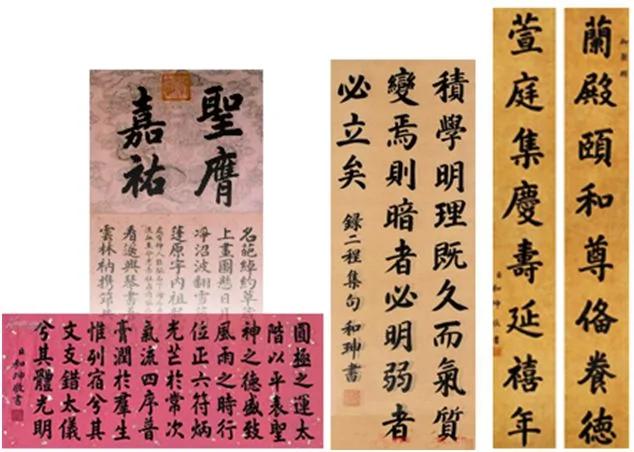 蘭殿頤和尊俻養德
萱庭集慶壽延禧年
臣和珅敬書
積學明理既久而氣質
變焉則暗者必明弱者
必立矣
錄二程集句 和珅書
聖膺
嘉祐
名葩綽約草
上畫圖懸日月
波翻雪
蓬原字内祖
看遂與琴書
雲林衲携筇
圓極之運太
階以平表聖
神之德盛致
風雨之時行
位正六符炳
光芒於常次
氣流四序普
膏潤於羣生
惟列宿兮其
文支錯太儀
兮其體光明
臣和珅敬書